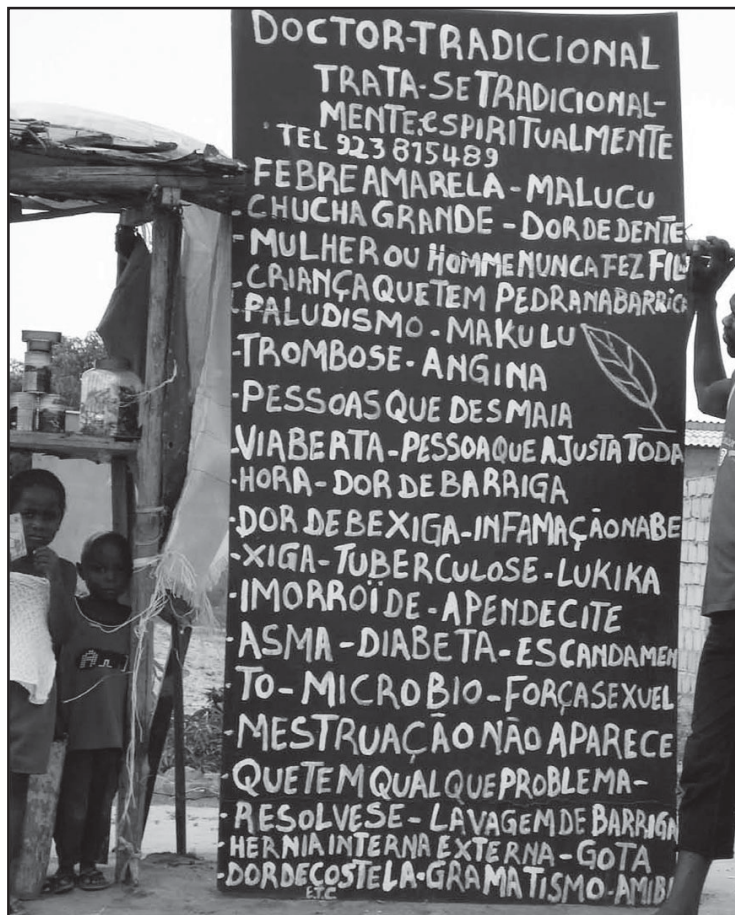 DOCTOR-TRADICIONAL
TRATA-SE TRADICIONAL-
MENTE.eSPIRITUALMENTE
TEL 923 815489
FEBRE AMARELA - MALUCU
- CHUCHA GRANDE - DOR DE DENTE
- MULHER OU HOMME NUNCA FEZ FIL
- CRIANÇA QUE TEM PEDRA NA BARRIG
- PALUDISMO - MAKULU
- TROMBOSE - ANGINA
- PESSOAS QUE DESMAIA
VIABERTA - PESSOA QUE AJUSTA TODA
- HORA - DOR DE BARRIGA
- DOR DE BEXIGA - INFAMAÇÃO NA BE
- XIGA - TUBERCULOSE - LUKIKA
- IMORROÏDE - APENDECITE
- ASMA - DIABETA - ESCANDAMEN
- TO - MICROBIO - FORÇA SEXUEL
- MESTRUAÇÃO NÃO APARECE
- QUE TEM QUALQUE PROBLEMA -
- RESOLVESE - LAVAGEM DE BARRIGA
- HERNIA INTERNA EXTERNA - GOTA
- DOR DE COSTELA - GRAMATISMO - AMIBI
E.T.C